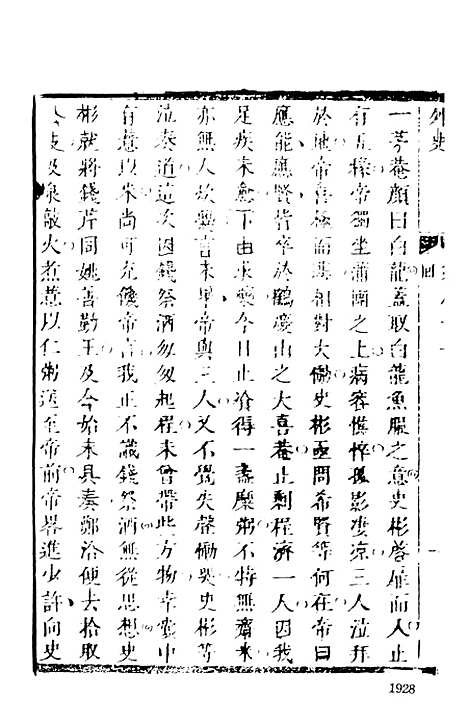 外史
回
一茅菴顏曰白龍蓋取白龍魚服之意史彬啓扉而入止
有五樣帝獨坐蒲團之上病容憔悴孤影凄凉三人泣拜
於地帝喜極而悲相對大慟史彬亟問希賢等何在帝曰
應能應賢皆卒於鶴慶山之大喜菴止剩程濟一人因我
足疾未愈下山求藥今日止湌得一盞糜粥不特無齎來
亦無人炊爨言未畢帝與三人又不覺失聲慟哭史彬等
泣奏道這次因錢祭酒匆匆起程未曾帶此方物幸囊中
有薏以米尚可充饑帝言我正不識錢祭酒無從思想史
彬就將錢芹同姚善勤王及今始未具奏鄭洽便去拾取
枝汲泉敲火煮薏以仁粥送至帝前帝畧進少許向史
1928